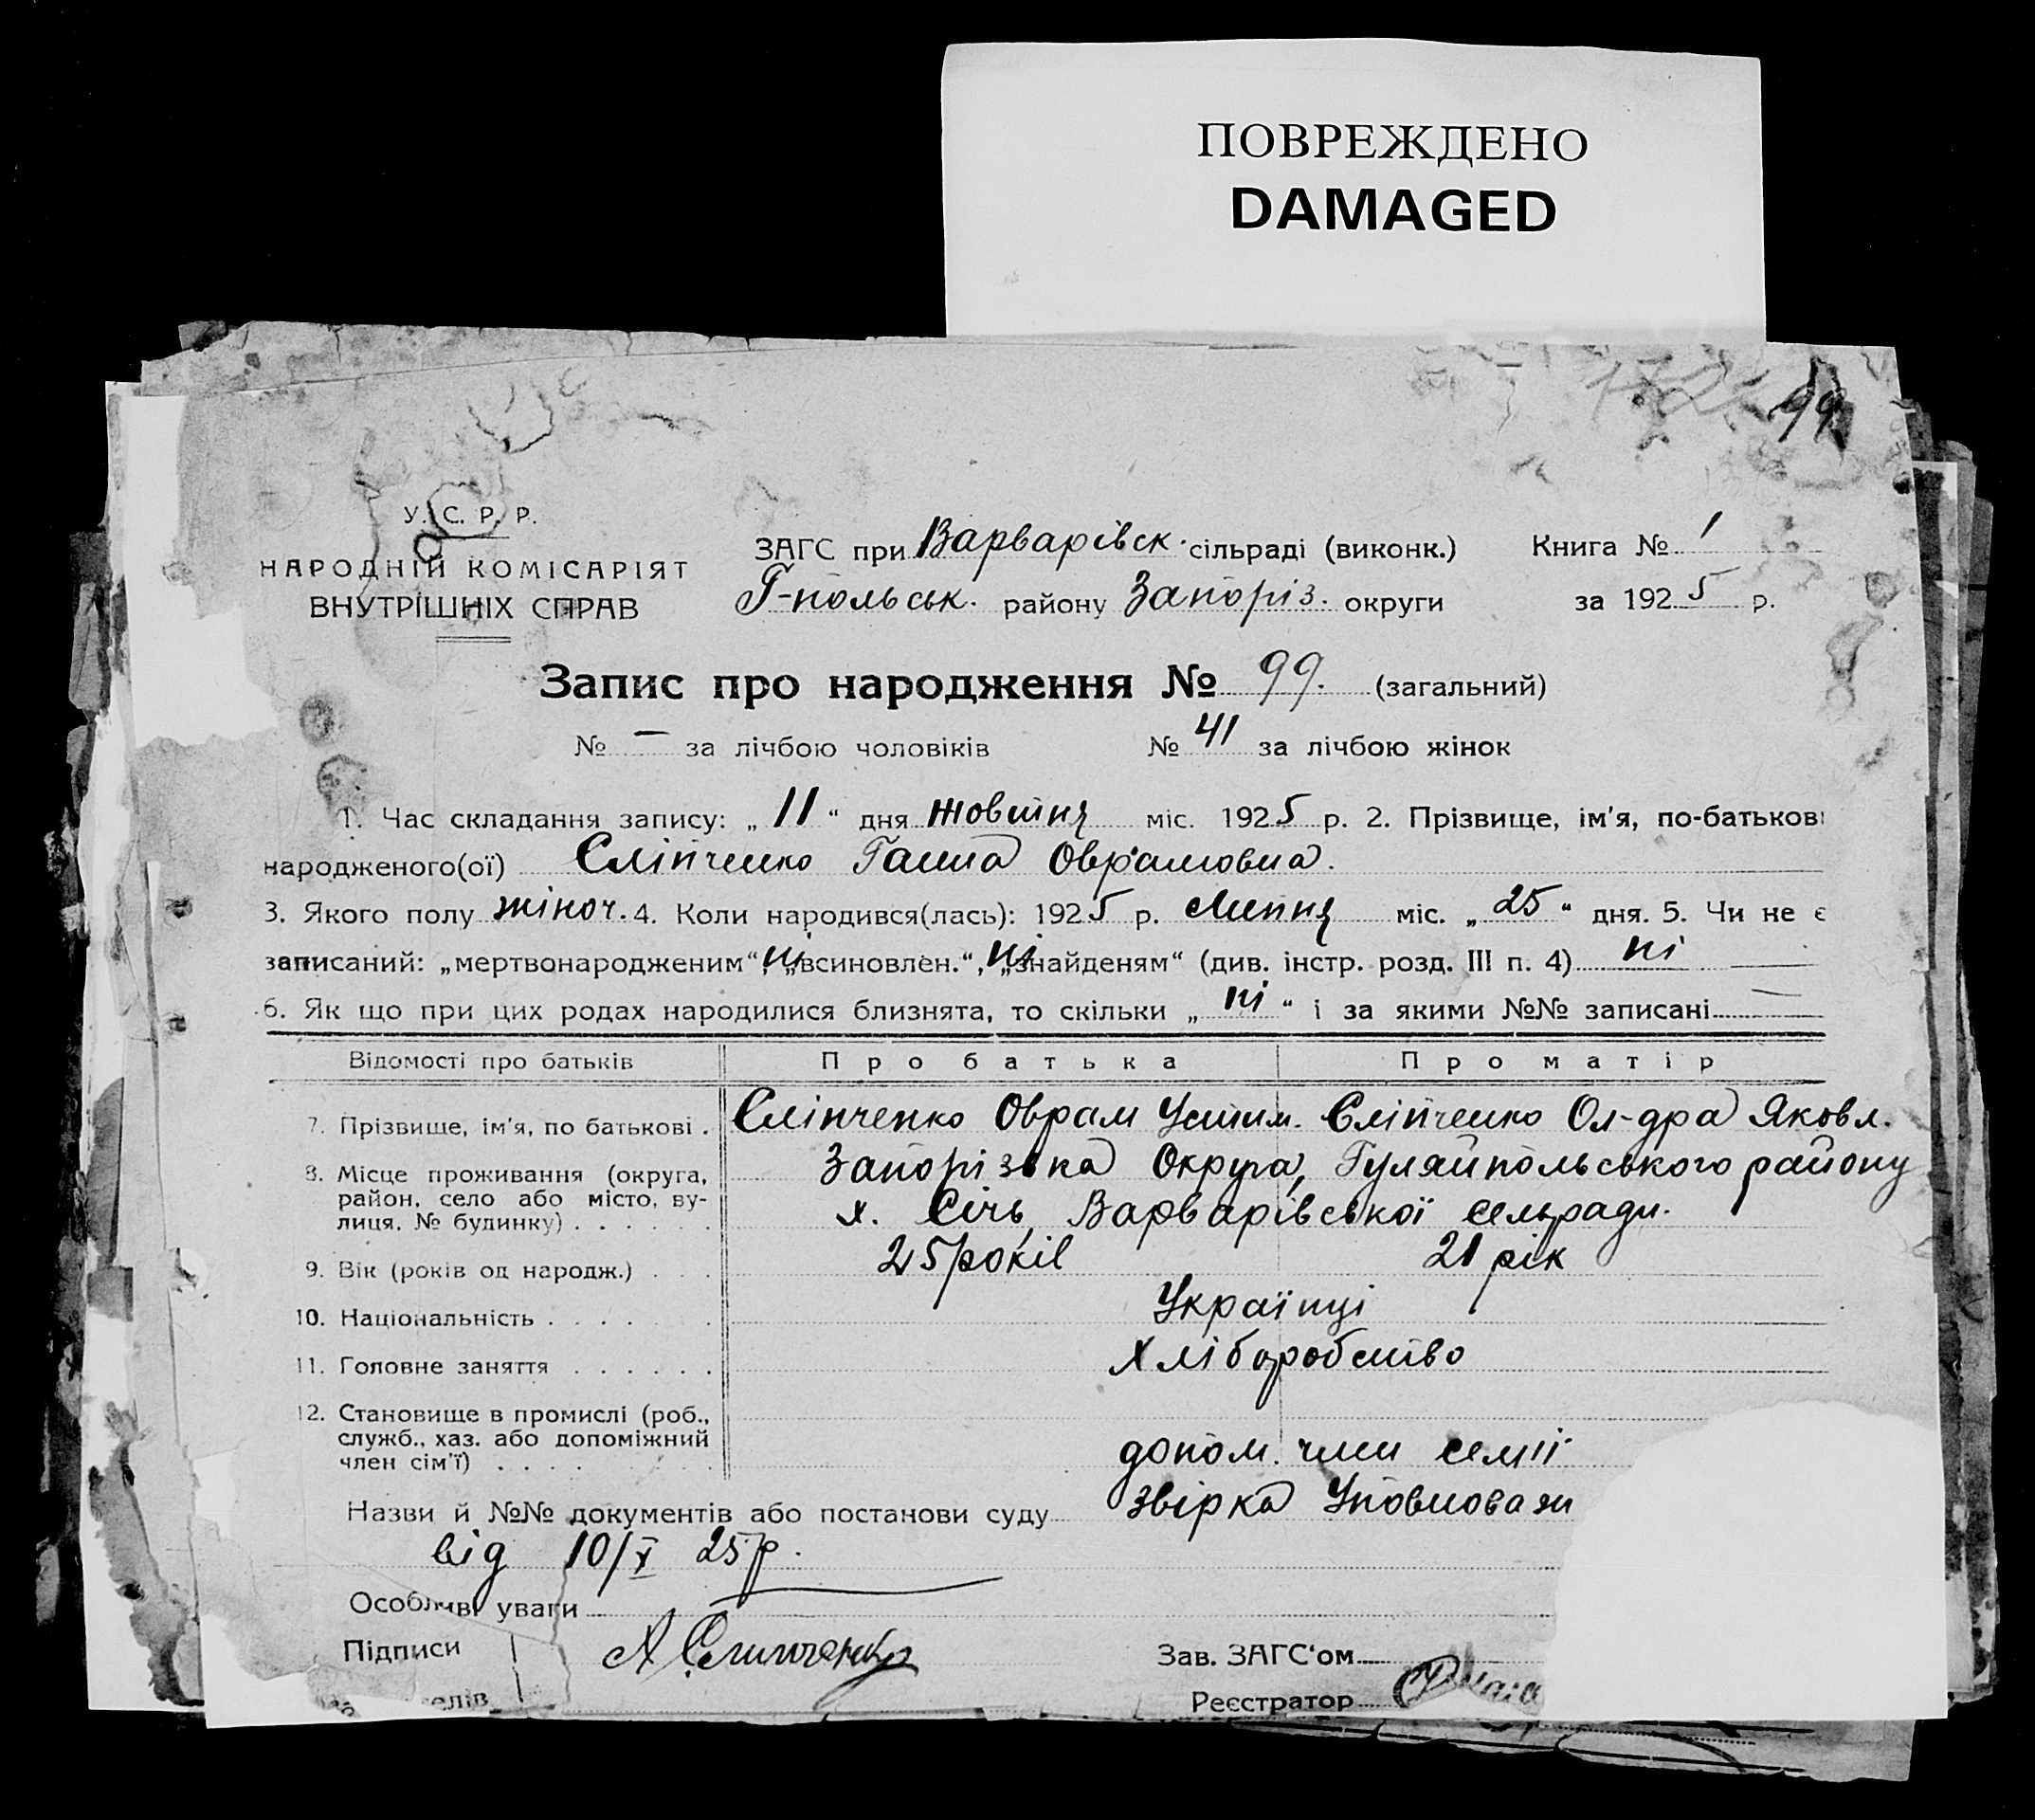 ПОВРЕЖДЕНО
DAMAGED
99
У. С. Р. Р.
НАРОДНІЙ КОМІСАРІЯТ
ВНУТРІШНІХ СПРАВ
ЗАГС при Варварівск. сільраді (виконк.) Книга № 1
Г-польськ. району Запоріз. округи за 1925 р.
Запис про народження № 99. (загальний)
№ — за лічбою чоловіків № 41 за лічбою жінок
1. Час складання запису: „11“ дня жовтня міс. 1925 р. 2. Прізвище, ім'я, по-батькові
народженого(ої) Сліпченко Ганна Оврамовна.
3. Якого полу жіноч. 4. Коли народився(лась): 1925 р. Липня міс. „25“ дня. 5. Чи не є
записаний: „мертвонародженим“, ні „всиновлен.“, ні „знайденям“ (див. інстр. розд. III п. 4) ні
6. Як що при цих родах народилися близнята, то скільки „ні“ і за якими №№ записані —
Відомості про батьків Про батька Про матір
7. Прізвище, ім'я, по батькові . Сліпченко Оврам Устим. Сліпченко Ол-дра Яковл.
8. Місце проживання (округа, Запорізька Округа, Гуляйпольського району
район, село або місто, ву-
лиця, № будинку) . . . . . . х. Січь, Варварівської сельради.
9. Вік (років од народж.) . . . 25 років 21 рік
10. Національність . . . . . . Українці
11. Головне заняття . . . . . . Хліборобство
12. Становище в промислі (роб.,
служб., хаз. або допоміжний
член сім'ї) . . . . допом. член семії
Назви й №№ документів або постанови суду звірка Уповноваж
від 10/X 25 р.
Особливі уваги
Підписи А Слипченко Зав. ЗАГС'ом
Реєстратор